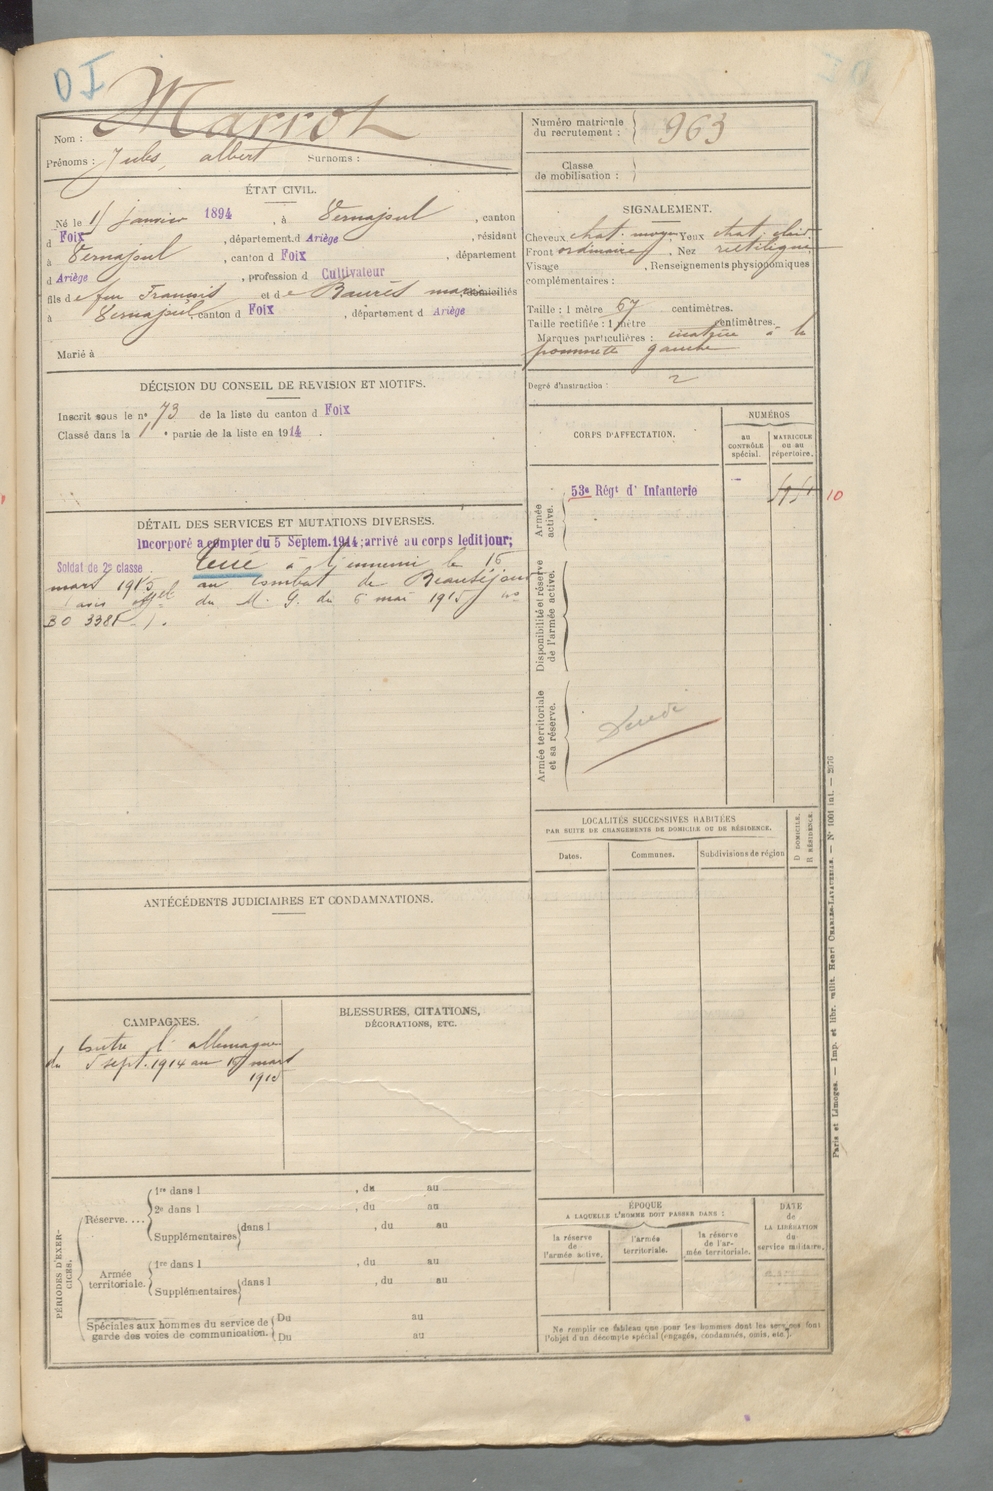 DI
Nom : Marrot
Prénoms : Jules, albert Surnoms :
Numéro matricule du recrutement : 963
Classe de mobilisation :
ÉTAT CIVIL.
Né le 1 janvier 1894, à Vernajoul, canton
d Foix, département d Ariège, résidant
à Vernajoul, canton d Foix, département
d Ariège, profession d Cultivateur
fils de feu Francois et de Baurès domiciliés
à Vernajoul, canton d Foix, département d Ariège
Marié à
SIGNALEMENT.
Cheveux chat. moyen. Yeux chat. clair
Front ordinaire, Nez rectiligne
Visage , Renseignements physionomiques
complémentaires :
Taille : 1 mètre 67 centimètres.
Taille rectifiée : 1 mètre centimètres.
Marques particulières : cicatrice à la
pommette gauche
Degré d'instruction : 2
DÉCISION DU CONSEIL DE REVISION ET MOTIFS.
Inscrit sous le n° 73 de la liste du canton d Foix
Classé dans la 1e partie de la liste en 1914.
CORPS D'AFFECTATION.
NUMÉROS
au CONTRÔLE spécial.
MATRICULE ou au répertoire.
Armée active.
53e Régt d' Infanterie
10
Disponibilité et réserve de l'armée active.
Armée territoriale et sa réserve.
DÉTAIL DES SERVICES ET MUTATIONS DIVERSES.
Incorporé a compter du 5 Septem. 1914; arrivé au corps ledit jour;
Soldat de 2e classe tué à l'ennemi le 15
mars 1915 au combat de Beauséjour
(avis offel du M. G. du 6 mai 1915 no
BO 3381).
LOCALITÉS SUCCESSIVES HABITÉES
PAR SUITE DE CHANGEMENTS DE DOMICILE OU DE RÉSIDENCE.
Dates.
Communes.
Subdivisions de région
D DOMICILE.
R RÉSIDENCE.
ANTÉCÉDENTS JUDICIAIRES ET CONDAMNATIONS.
CAMPAGNES.
Contre l'allemagne
du 5 sept. 1914 au 15 mars
1915
BLESSURES, CITATIONS,
DÉCORATIONS, ETC.
PÉRIODES D'EXERCICES.
Réserve....
1re dans l , du au
2e dans l , du au
Supplémentaires dans l , du au
Armée territoriale.
1re dans l , du au
Supplémentaires dans l , du au
Spéciales aux hommes du service de garde des voies de communication.
Du au
Du au
ÉPOQUE
A LAQUELLE L'HOMME DOIT PASSER DANS :
la réserve de l'armée active.
l'armée territoriale.
la réserve de l'armée territoriale.
DATE de LA LIBÉRATION du service militaire.
Ne remplir ce tableau que pour les hommes dont les services font
l'objet d'un décompte spécial (engagés, condamnés, omis, etc.).
Paris et Limoges. — Imp. et libr. milit. Henri CHARLES-LAVAUZELLE. — N° 1001 int. — 2976